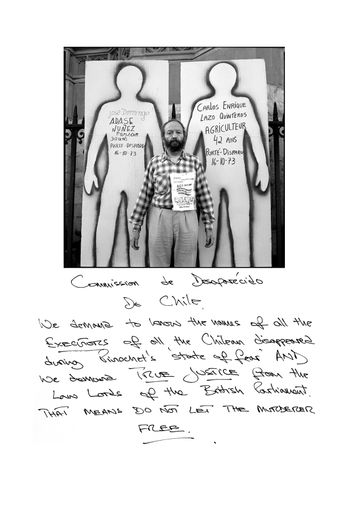 José Domingo
ADASE
NÚÑEZ
PORTÉ-DISPARU
16-10-73
CARLOS ENRIQUE
LAZO QUINTEROS
AGRICULTEUR
42 ANS
PORTÉ-DISPARU
16-10-73
Commission de Desaparécido
De Chile.
We demand to know the names of all the
EXECUTORS of all the Chilean disappeared
during Pinochet's "state of fear" AND
We demand TRUE JUSTICE from the
Law Lords of the British Parliament.
THAT MEANS DO NOT LET THE MURDERER
FREE.